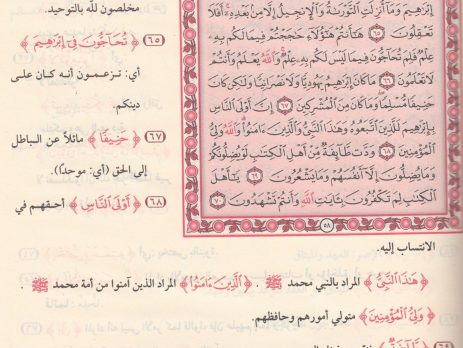 مخلصون لله بالتوحيد.
(٦٥) ﴿ تُحَآجُّونَ فِىٓ إِبْرَٰهِيمَ ﴾
أي: تزعمون أنه كان على
دينكم.
(٦٧) ﴿ حَنِيفًا ﴾ مائلاً عن الباطل
إلى الحق (أي: موحداً).
(٦٨) ﴿ أَوْلَى ٱلنَّاسِ ﴾ أحقهم في
إِبْرَٰهِيمَ وَمَآ أُنزِلَتِ ٱلتَّوْرَىٰةُ وَٱلْإِنجِيلُ إِلَّا مِنۢ بَعْدِهِۦٓ أَفَلَا
تَعْقِلُونَ ٦٥ هَٰٓأَنتُمْ هَٰٓؤُلَآءِ حَٰجَجْتُمْ فِيمَا لَكُم بِهِۦ
عِلْمٌ فَلِمَ تُحَآجُّونَ فِيمَا لَيْسَ لَكُم بِهِۦ عِلْمٌ وَٱللَّهُ يَعْلَمُ وَأَنتُمْ
لَا تَعْلَمُونَ ٦٦ مَا كَانَ إِبْرَٰهِيمُ يَهُودِيًّا وَلَا نَصْرَانِيًّا وَلَٰكِن كَانَ
حَنِيفًا مُّسْلِمًا وَمَا كَانَ مِنَ ٱلْمُشْرِكِينَ ٦٧ إِنَّ أَوْلَى ٱلنَّاسِ
بِإِبْرَٰهِيمَ لَلَّذِينَ ٱتَّبَعُوهُ وَهَٰذَا ٱلنَّبِىُّ وَٱلَّذِينَ ءَامَنُوا۟ وَٱللَّهُ وَلِىُّ
ٱلْمُؤْمِنِينَ ٦٨ وَدَّت طَّآئِفَةٌ مِّنْ أَهْلِ ٱلْكِتَٰبِ لَوْ يُضِلُّونَكُمْ
وَمَا يُضِلُّونَ إِلَّآ أَنفُسَهُمْ وَمَا يَشْعُرُونَ ٦٩ يَٰٓأَهْلَ
ٱلْكِتَٰبِ لِمَ تَكْفُرُونَ بِـَٔايَٰتِ ٱللَّهِ وَأَنتُمْ تَشْهَدُونَ ٧٠
٥٨
الانتساب إليه.
﴿ هَٰذَا ٱلنَّبِىُّ ﴾ المراد بالنبي محمد ﷺ. ﴿ ٱلَّذِينَ ءَامَنُوا۟ ﴾ المراد الذين آمنوا من أمة محمد ﷺ.
﴿ وَلِىُّ ٱلْمُؤْمِنِينَ ﴾ متولي أمورهم وحافظهم.